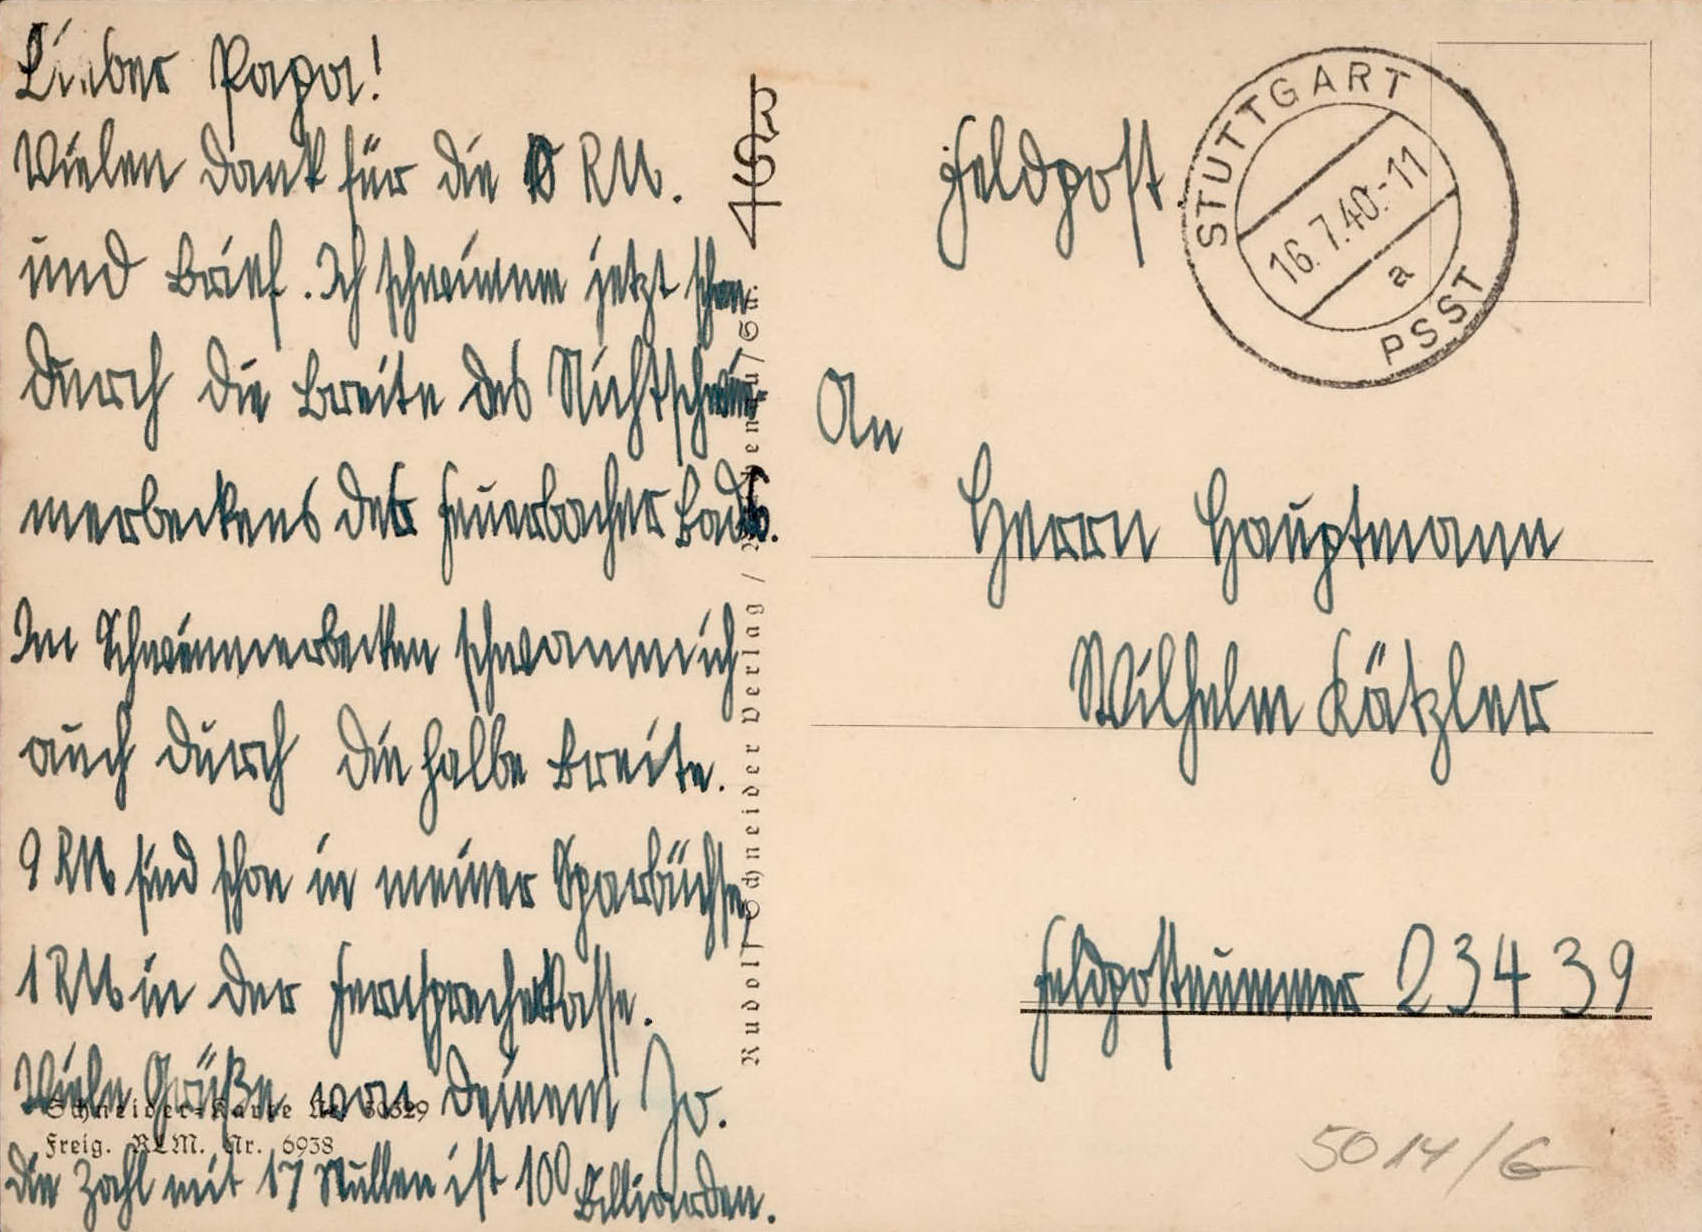 Lieber Papa!
Vielen Dank für die RM.
und Brief. Ich schwimme jetzt schon
durch die Breite des Nichtschwim-
merbeckens des Feuerbacher Bads.
Im Schwimmerbecken schwamm ich
auch durch die halbe Breite.
9 RM sind schon in meiner Sparbüchse
1 RM in der Fernsprecherkasse.
Viele Grüße von Deinem Jo.
Die Zahl mit 17 Nullen ist 100 Billiarden.
Schneider-Karte Nr. 30329
Freig. RLM. Nr. 6938
Rudolf Schneider Verlag /
Feldpost
STUTTGART
16.7.40.-11
a
PSST
An
Herrn Hauptmann
Wilhelm Kätzler
Feldpostnummer 23439
5014/G